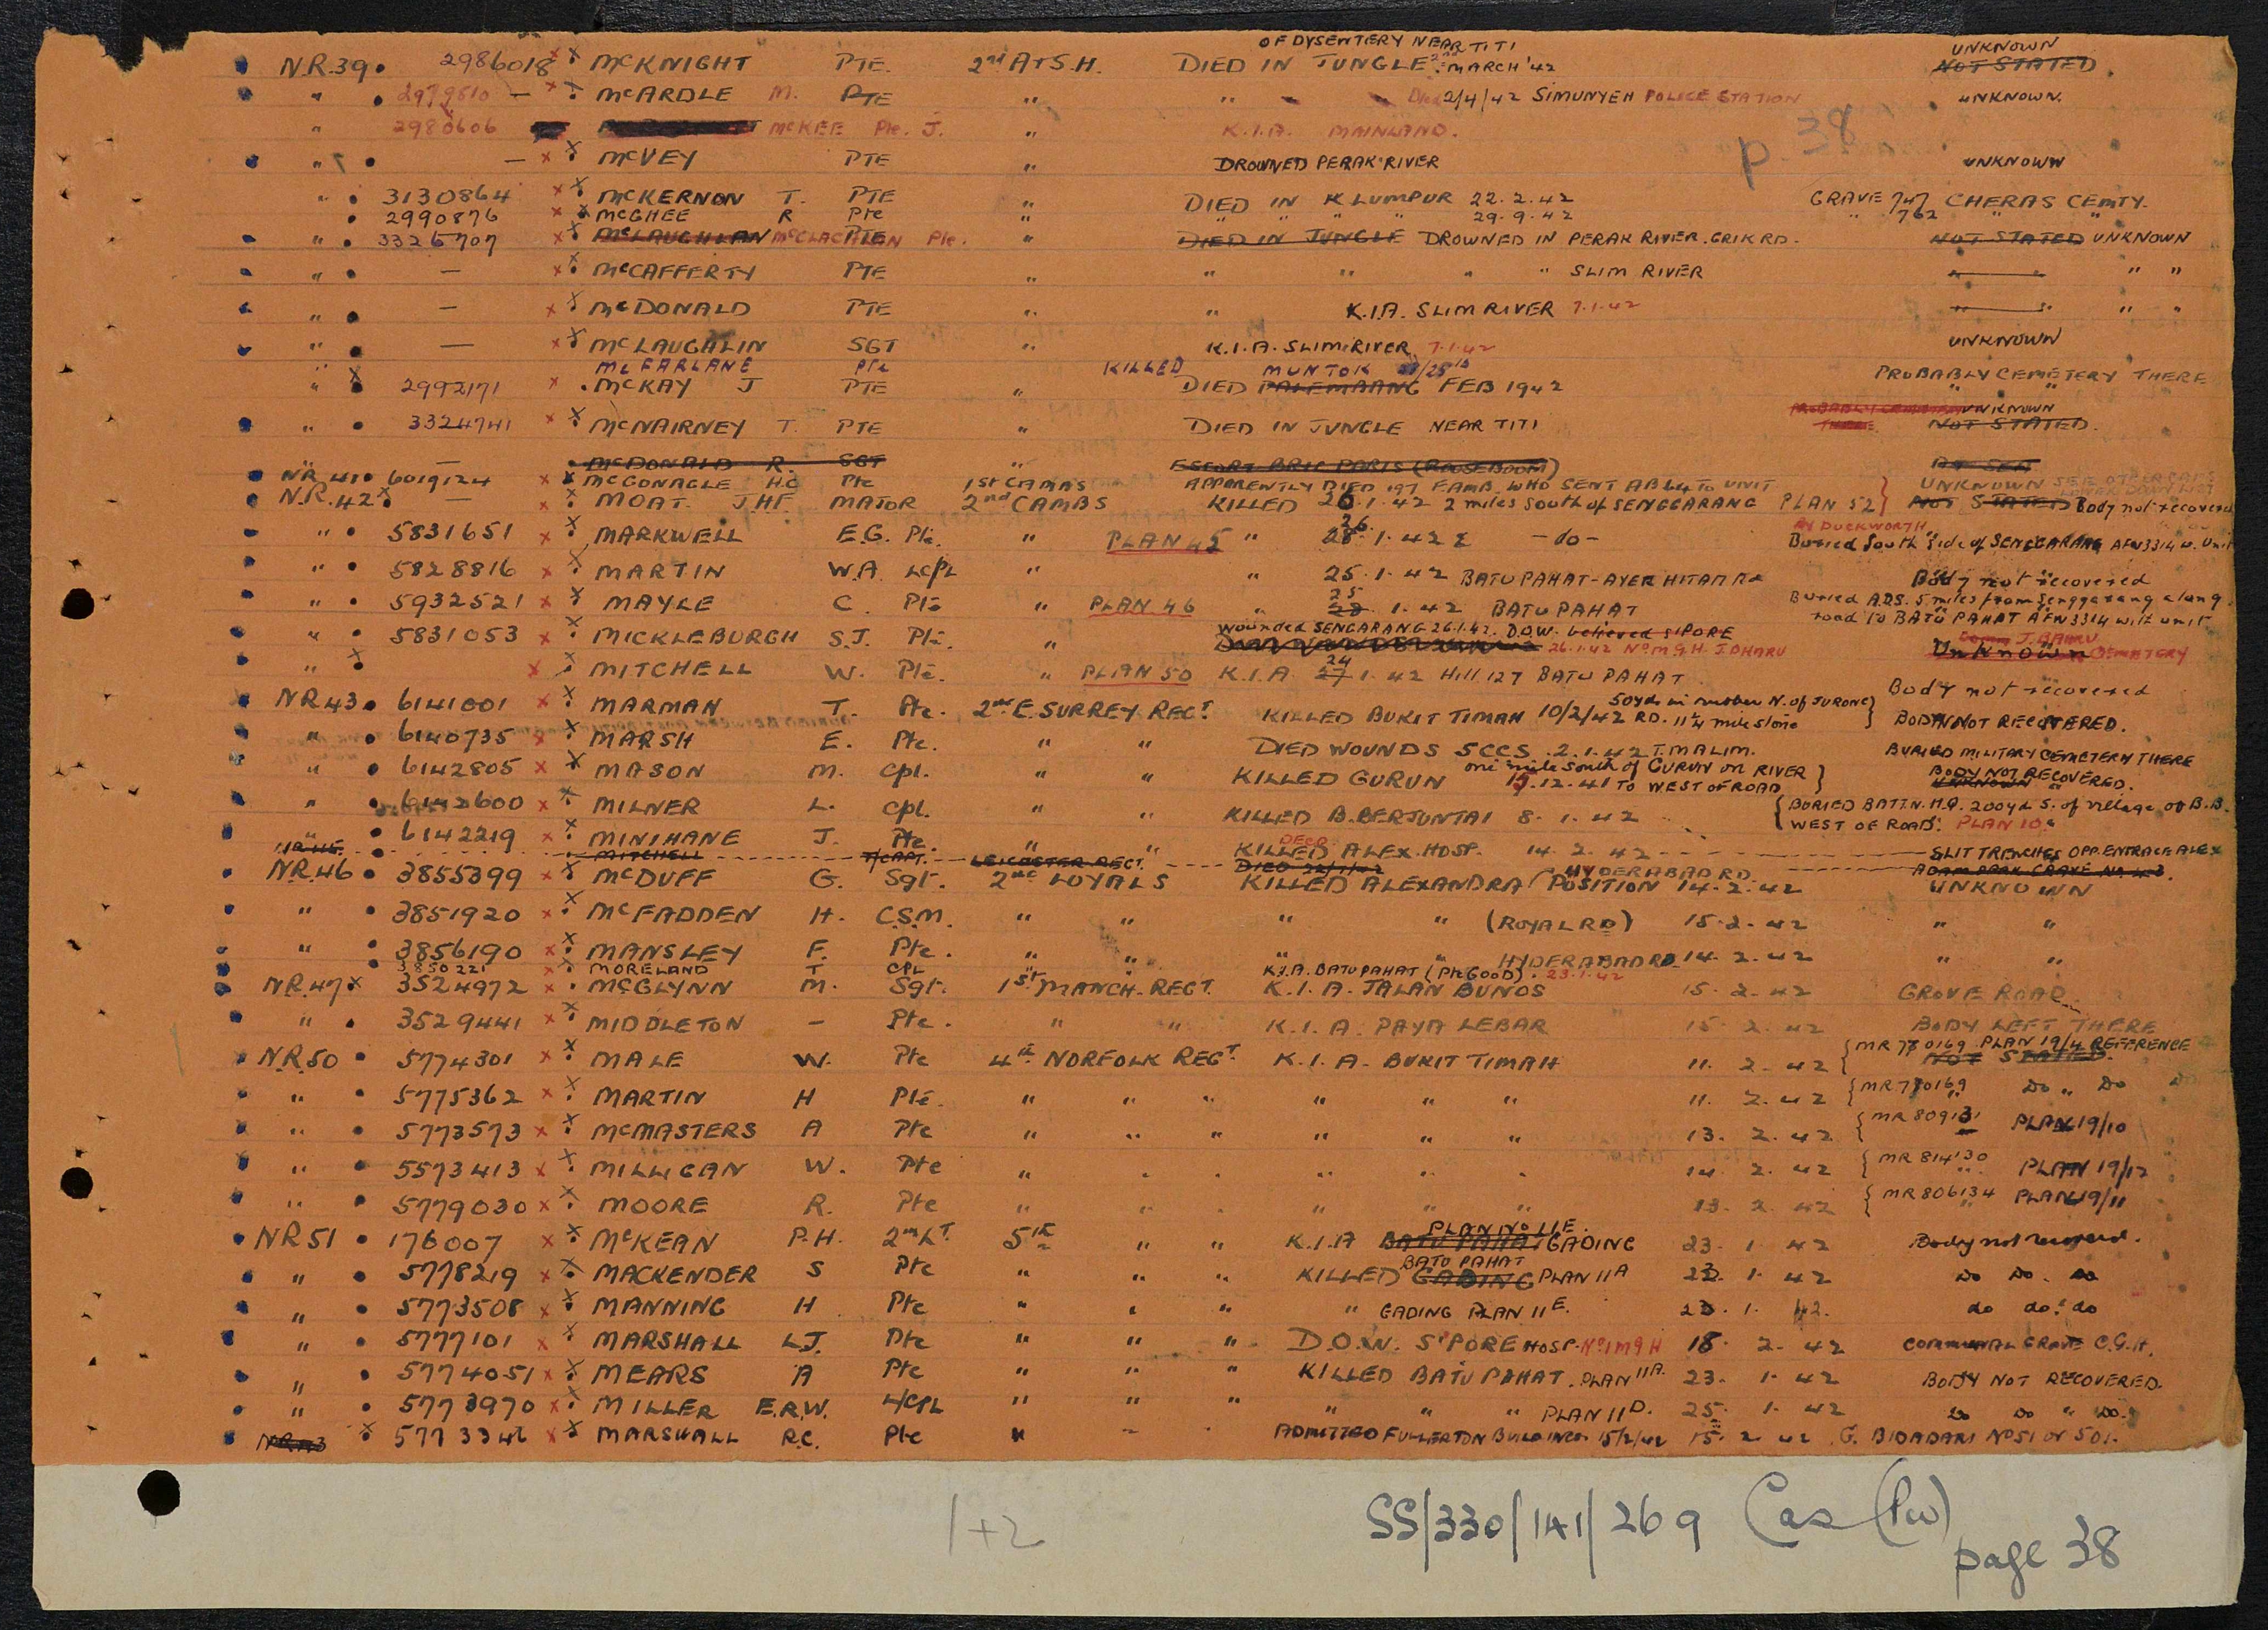 OF DYSENTERY NEAR TITI UNKNOWN
N.R.39. 2986018 McKNIGHT PTE. 2nd A & S.H. DIED IN JUNGLE 2nd MARCH '42 NOT STATED.
" 2979810 — McARDLE M. PTE " " Died 2/4/42 SIMUNYEH POLICE STATION UNKNOWN.
" 2980606 McKEE Pte. J. " K.I.A. MAINLAND.
p 38
" — McVEY PTE " DROWNED PERAK RIVER UNKNOWN
" 3130864 McKERNON T. PTE " DIED IN K LUMPUR 22.2.42 GRAVE 747 CHERAS CEMTY.
2990876 McGHEE R Pte " " " " " 29.9.42 " 762 " "
" 3326707 McLAUGHLAN McCLACHLAN PTE Pte. " DIED IN JUNGLE DROWNED IN PERAK RIVER. GRIK RD. NOT STATED UNKNOWN
" — McCAFFERTY PTE " " " " " SLIM RIVER " " "
" — McDONALD PTE " " K.I.A. SLIM RIVER 7.1.42 " " " "
" — McLAUGHLIN SGT " K.I.A. SLIM RIVER 7.1.42 UNKNOWN
" McFARLANE Pte KILLED MUNTOK
" 2992171 McKAY J PTE " DIED PALEMBANG FEB 1942 PROBABLY CEMETERY THERE
PROBABLY CEMETERY THERE UNKNOWN
" 3324741 McNAIRNEY T. PTE " DIED IN JUNGLE NEAR TITI NOT STATED.
" — McDONALD R. SGT " ESCORT BRIG PARIS (ROOSEBOOM) AT SEA
NR 41. 6019124 McGONAGLE H.C Pte 1st CAMBS APPARENTLY DIED 197 F.AMB. WHO SENT AB64 TO UNIT UNKNOWN
N.R.42 — MOAT. J.H.F. MAJOR 2nd CAMBS KILLED 26.1.42 2 miles South of SENGGARANG PLAN 52 } NOT STATED Body not recovered
BY DUCKWORTH
" 5831651 MARKWELL E.G. Pte. " PLAN 45 " 26 28.1.42 — do — Buried South Side of SENGGARANG AFW3314 w. Unit
" 5828816 MARTIN W.A. L/CPL " " 25.1.42 BATU PAHAT - AYER HITAM Rd Body not recovered
" 5932521 MAYLE C. Pte " PLAN 46 " 25 28.1.42 BATU PAHAT Buried A.D.S. 5 miles from Senggarang along
road to BATU PAHAT AFW3314 with unit
Wounded SENGARANG 26.1.42. D.O.W. believed S'PORE
" 5831053 MICKLEBURGH S.J. Pte. " 26.1.42 No. M.G.H. J.BHARU Unknown J. BAHRU CEMETERY
" MITCHELL W. Pte. " PLAN 50 K.I.A. 24 27.1.42 Hill 127 BATU PAHAT. Body not recovered
NR43. 6141001 MARMAN T. Pte. 2nd E. SURREY REGT. KILLED BUKIT TIMAH 10/2/42 50yds in rubber N. of JURONG RD. 11¼ milestone } BODY NOT RECOVERED.
" 6140735 MARSH E. Pte. " " DIED WOUNDS 5 CCS. 2.1.42 T. MALIM. BURIED MILITARY CEMETERY THERE
" 6142805 MASON M. Cpl. " " KILLED GURUN 15.12.41 one mile South of GURUN on RIVER TO WEST OF ROAD } BODY NOT RECOVERED. UNKNOWN
" 6142600 MILNER L. Cpl. " " KILLED B. BERJUNTAI 8.1.42 { BURIED BATTN. H.Q. 200yd S. of village of B.B. WEST OF ROAD. PLAN 10.
" 6142219 MINIHANE J. Pte. " " KILLED DECD. ALEX. HOSP. 14.2.42 SLIT TRENCHES OPP. ENTRACE ALEX
NR45. MITCHELL T/CAPT. LEICESTER REGT. DIED ADAM PARK GRAVE No
NR.46 3855399 McDUFF G. Sgt. 2nd LOYALS KILLED ALEXANDRA HYDERABAD RD. POSITION 14.2.42 UNKNOWN
" 3851920 McFADDEN H. C.S.M. " " " " (ROYAL RD) 15.2.42 " "
" 3856190 MANSLEY F. Pte. " " " " HYDERABAD RD 14.2.42 " "
3850221 MORELAND T CPL " K.I.A. BATU PAHAT (Pte GOOD). 23.1.42
NR.47 3524972 McGLYNN M. Sgt. 1st MANCH. REGT. K.I.A. JALAN BUNOS 15.2.42 GROVE ROAD.
" 3529441 MIDDLETON — Pte. " " K.I.A. PAYA LEBAR 15.2.42 BODY LEFT THERE
N.R.50 5774301 MALE W. Pte 4th NORFOLK REGT. K.I.A. BUKIT TIMAH 11.2.42 { MR 780169 PLAN 19/4 REFERENCE NOT STATED.
" 5775362 MARTIN H Pte. " " " " " " 11.2.42 { MR 770169 Do " Do
" 5773573 McMASTERS A Pte " " " " " " 13.2.42 { MR 809131 PLAN 19/10
" 5573413 MILLIGAN W. Pte " " " " " " 14.2.42 { MR 814130 PLAN 19/12
" 5779030 MOORE R. Pte " " " " " " 13.2.42 { MR 806134 PLAN 19/11
NR 51 176007 McKEAN P.H. 2nd LT. 5th " " K.I.A BATU PAHAT PLAN No 11E. GADING 23.1.42 Body not recovered.
" 5778219 MACKENDER S Pte " " " KILLED GADING BATU PAHAT PLAN 11A 23.1.42 Do Do. Do
" 5773508 MANNING H Pte " " " " GADING PLAN 11E. 23.1.42. do do. do
" 5777101 MARSHALL L.J. Pte " " " D.O.W. S'PORE HOSP. No 1 M G H 18.2.42 COMMUNAL GRAVE C.G.H.
" 5774051 MEARS A Pte " " " KILLED BATU PAHAT. PLAN 11A. 23.1.42 BODY NOT RECOVERED.
" 5773970 MILLER E.R.W. L/CPL " " " " " " PLAN 11D. 25.1.42 Do Do " Do.
5773346 MARSHALL R.C. Pte " " " ADMITTED FULLERTON BUILDINGS 15/2/42 15.2.42 G. BIDADARI No 51 or 501.
1+2
SS/330/141/269 Cas (Pw)
page 38